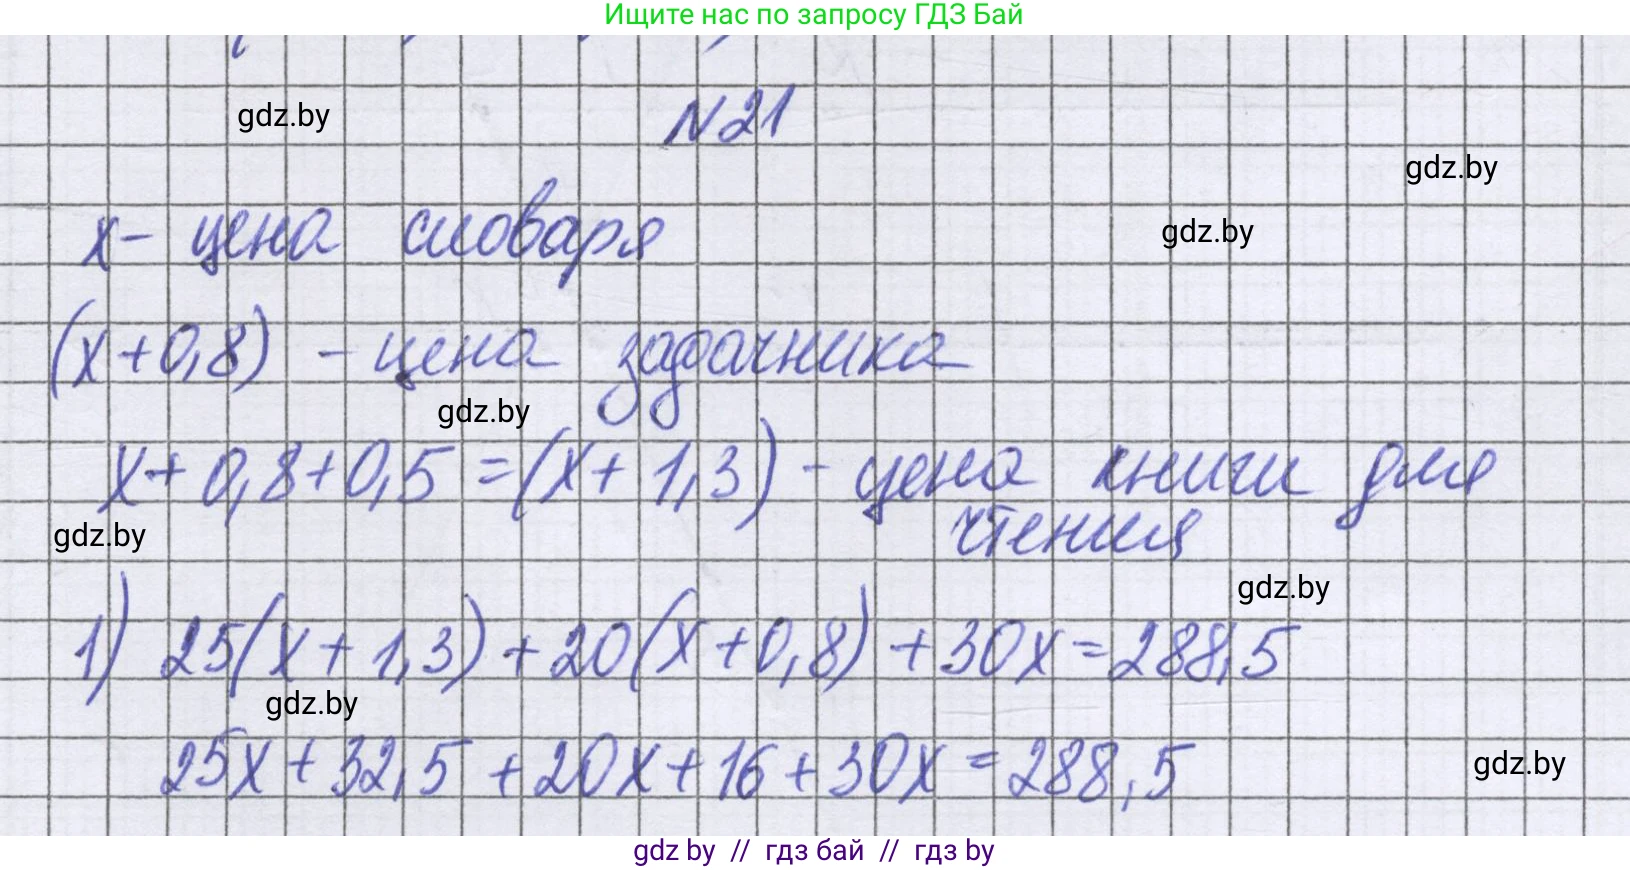 Ищите нас по запросу ГДЗ Бай
gdz.by
N21
gdz.by
gdz.by
x - цена словаря
(x+0,8) - цена задачника
gdz.by
x+0,8+0,5=(x+1,3) - цена книги для
чтения
gdz.by
gdz.by
1) 25(x+1,3)+20(x+0,8)+30x=288,5
gdz.by
25x+32,5+20x+16+30x=288,5
gdz.by
gdz by // гдз бай // гдз by